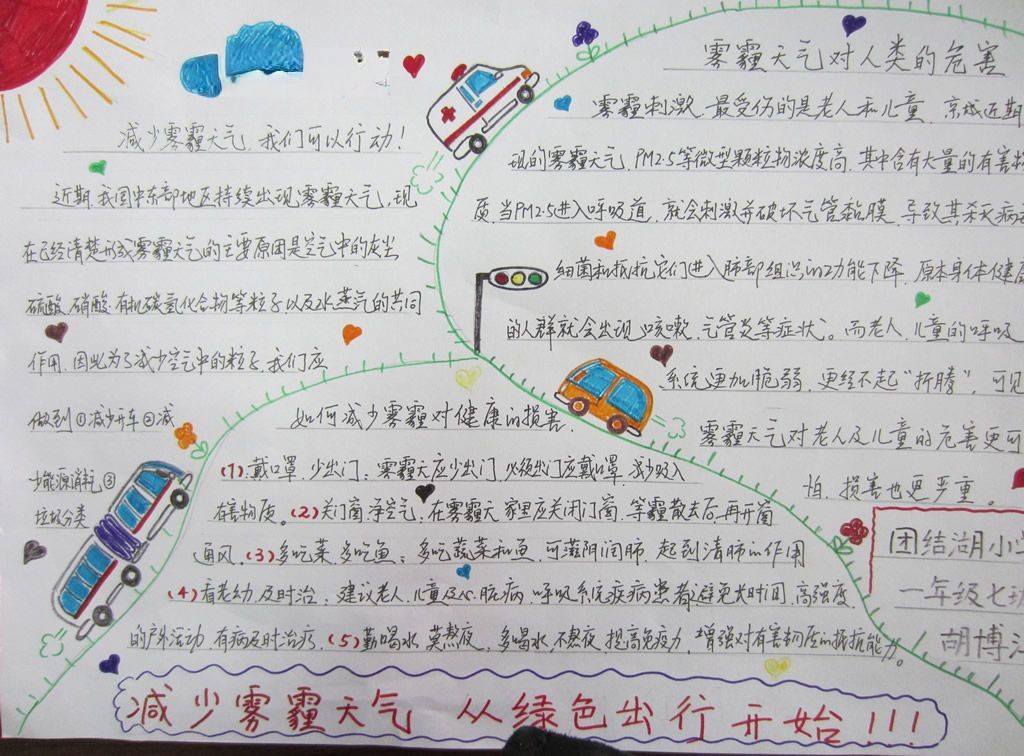 减少雾霾天气,我们可以行动!
近期,我国中东部地区持续出现雾霾天气,现
在已经清楚形成雾霾天气的主要原因是空气中的灰尘
硫酸、硝酸、有机碳氢化合物等粒子以及水蒸气的共同
作用,因此为了减少空气中的粒子,我们应
做到①减少开车②减
少能源消耗③
垃圾分类
雾霾天气对人类的危害
雾霾刺激,最受伤的是老人和儿童,京城近期
现的雾霾天气,PM2.5等微型颗粒物浓度高,其中含有大量的有害
质,当PM2.5进入呼吸道,就会刺激并破坏气管黏膜,导致其杀灭病
细菌和抵抗它们进入肺部组织的功能下降,原本身体健
的人群就会出现咳嗽、气管炎等症状。而老人、儿童的呼吸
系统更加脆弱,更经不起“折腾”,可见
雾霾天气对老人及儿童的危害更可
怕,损害也更严重。
如何减少雾霾对健康的损害.
(1).戴口罩,少出门:雾霾天应少出门,必须出门应戴口罩,减少吸入
有害物质。(2)关门窗净空气:在雾霾天家里应关闭门窗,等霾散去后再开窗
通风。(3)多吃菜,多吃鱼:多吃蔬菜和鱼,可滋阴润肺,起到清肺的作用
(4)看老幼,及时治:建议老人、儿童及心脏病、呼吸系统疾病患者避免长时间、高强度
的户外活动,有病及时治疗,(5)勤喝水,莫熬夜,多喝水,不熬夜,提高免疫力,增强对有害物质的抵抗能力。
团结湖小学
一年级七班
胡博
减少雾霾天气 从绿色出行开始!!!